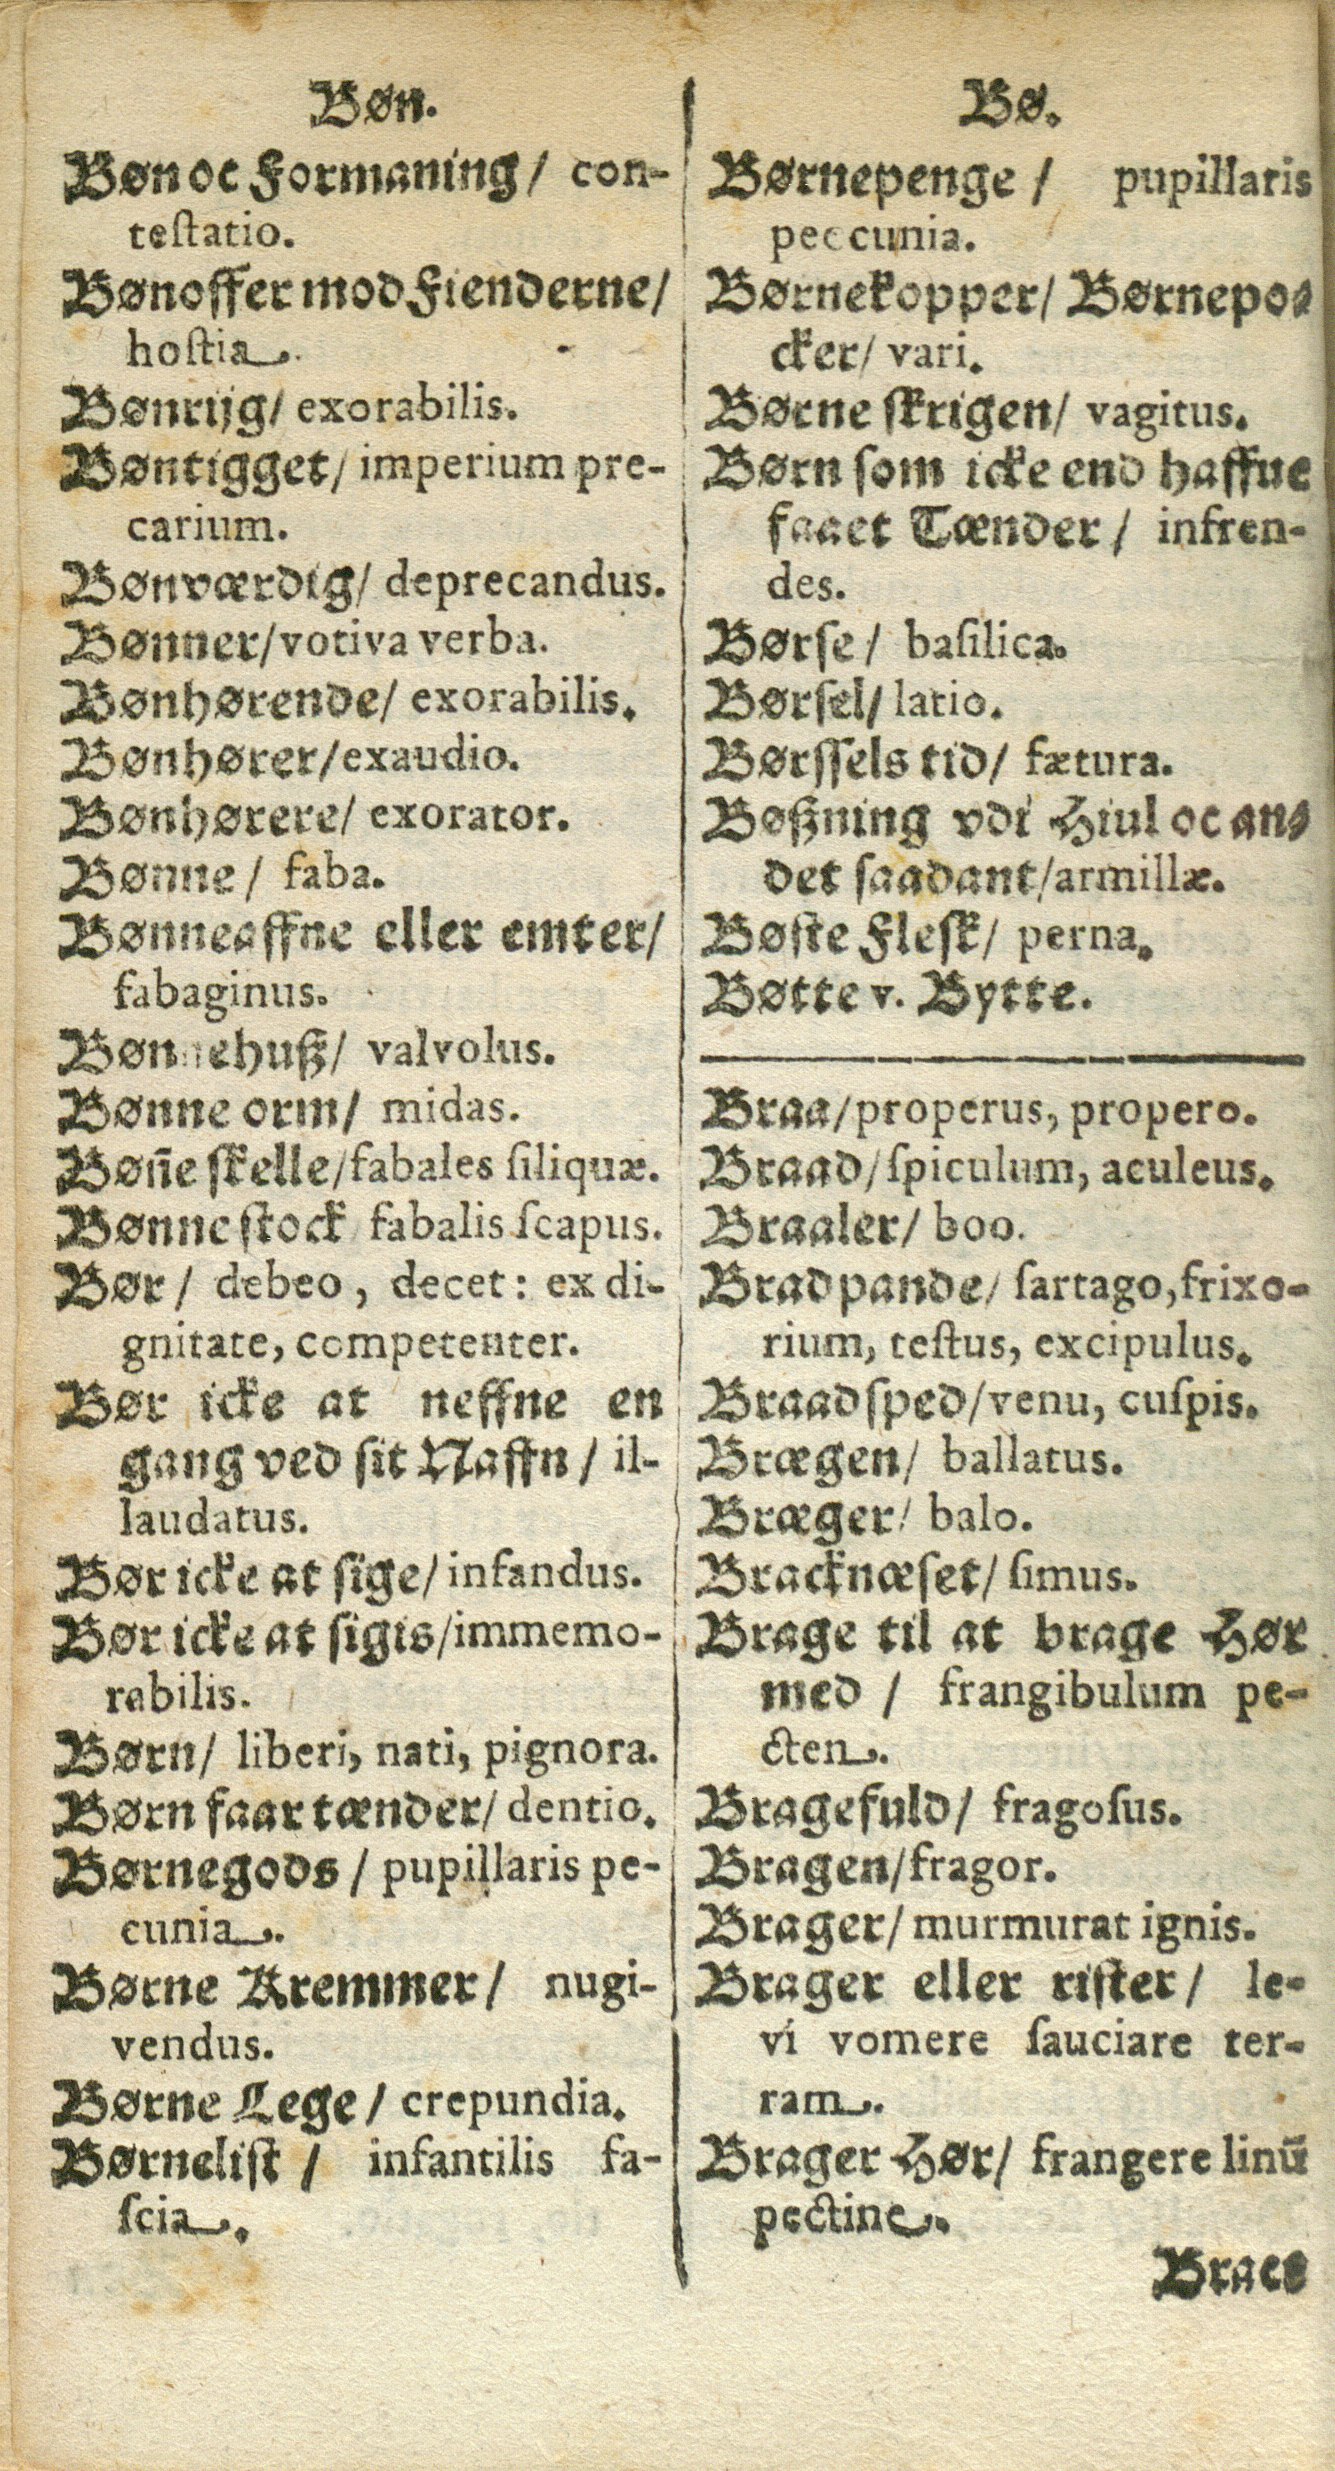 Bøn.
Bøn oc Formaning/ con-
testatio.
Bønoffer mod Fienderne/
hostia.
Bønrijg/ exorabilis.
Bøntigget/ imperium pre-
carium.
Bønværdig/ deprecandus.
Bønner/ votiva verba.
Bønhørende/ exorabilis.
Bønhører/ exaudio.
Bønhørere/ exorator.
Bønne/ faba.
Bønneaffne eller emter/
fabaginus.
Bønnehuß/ valvolus.
Bønne orm/ midas.
Bøñe skelle/ fabales siliquæ.
Bønne stock/ fabalis scapus.
Bør/ debeo, decet: ex di-
gnitate, competenter.
Bør icke at neffne en
gang ved sit Naffn/ il-
laudatus.
Bør icke at sige/ infandus.
Bør icke at sigis/ immemo-
rabilis.
Børn/ liberi, nati, pignora.
Børn faar tænder/ dentio.
Børnegods/ pupillaris pe-
cunia.
Børne Kremmer/ nugi-
vendus.
Børne Lege/ crepundia.
Børnelist/ infantilis fa-
scia.
Bø.
Børnepenge/ pupillaris
peccunia.
Børnekopper/ Børnepo-
cker/ vari.
Børne skrigen/ vagitus.
Børn som icke end haffue
faaet Tænder/ infren-
des.
Børse/ basilica.
Børsel/ latio.
Børssels tid/ fætura.
Bøßning vdi Hiul oc an-
det saadant/ armillæ.
Bøste Flesk/ perna.
Bøtte v. Bytte.
Braa/ properus, propero.
Braad/ spiculum, aculeus.
Braaler/ boo.
Bradpande/ sartago, frixo-
rium, testus, excipulus.
Braadsped/ venu, cuspis.
Brægen/ ballatus.
Bræger/ balo.
Bracknæset/ simus.
Brage til at brage Hør
med/ frangibulum pe-
cten.
Bragefuld/ fragosus.
Bragen/ fragor.
Brager/ murmurat ignis.
Brager eller rister/ le-
vi vomere sauciare ter-
ram.
Brager Hør/ frangere linū
pectine.
Brac-